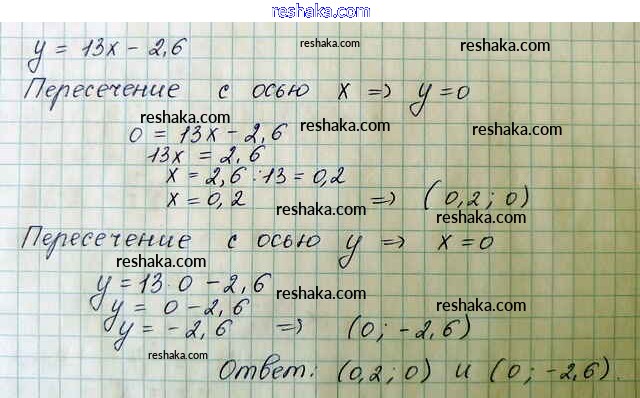 reshaka.com
y = 13x - 2,6
Пересечение с осью x => y=0
0 = 13x - 2,6
13x = 2,6
x = 2,6 : 13 = 0,2
x = 0,2 => (0,2; 0)
Пересечение с осью y => x=0
y = 13·0 - 2,6
y = 0 - 2,6
y = -2,6 => (0; -2,6)
Ответ: (0,2; 0) и (0; -2,6).
reshaka.com
reshaka.com
reshaka.com
reshaka.com
reshaka.com
reshaka.com
reshaka.com
reshaka.com
reshaka.com
reshaka.com
reshaka.com
reshaka.com
reshaka.com
reshaka.com